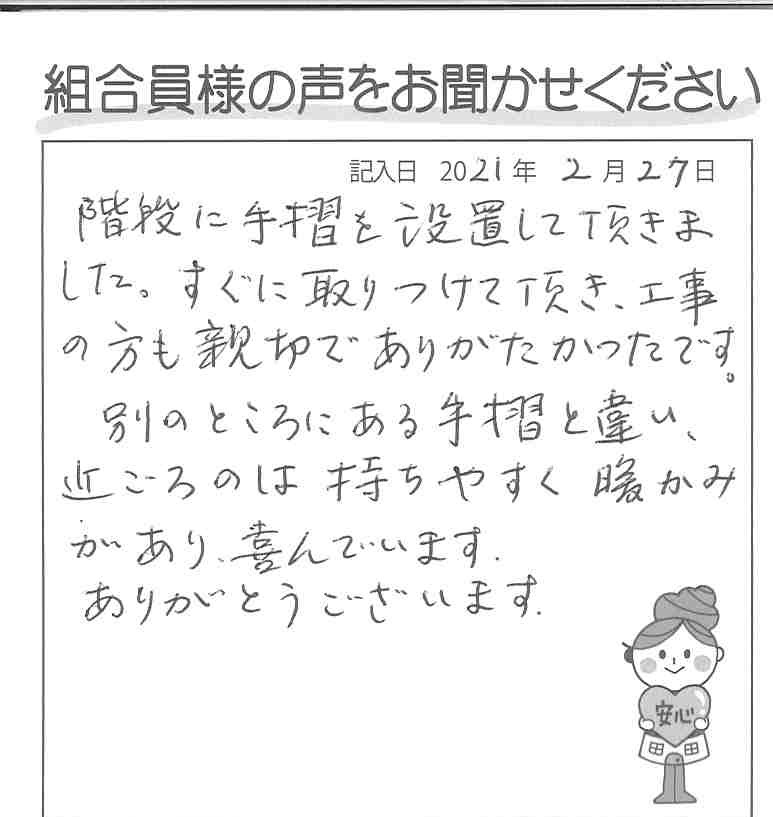 組合員様の声をお聞かせください
記入日 2021年 2月27日
階段に手摺を設置して頂きま
した。すぐに取りつけて頂き、工事
の方も親切でありがたかったです。
別のところにある手摺と違い、
近ごろのは持ちやすく暖かみ
があり、喜んでいます.
ありがとうございます.
安心